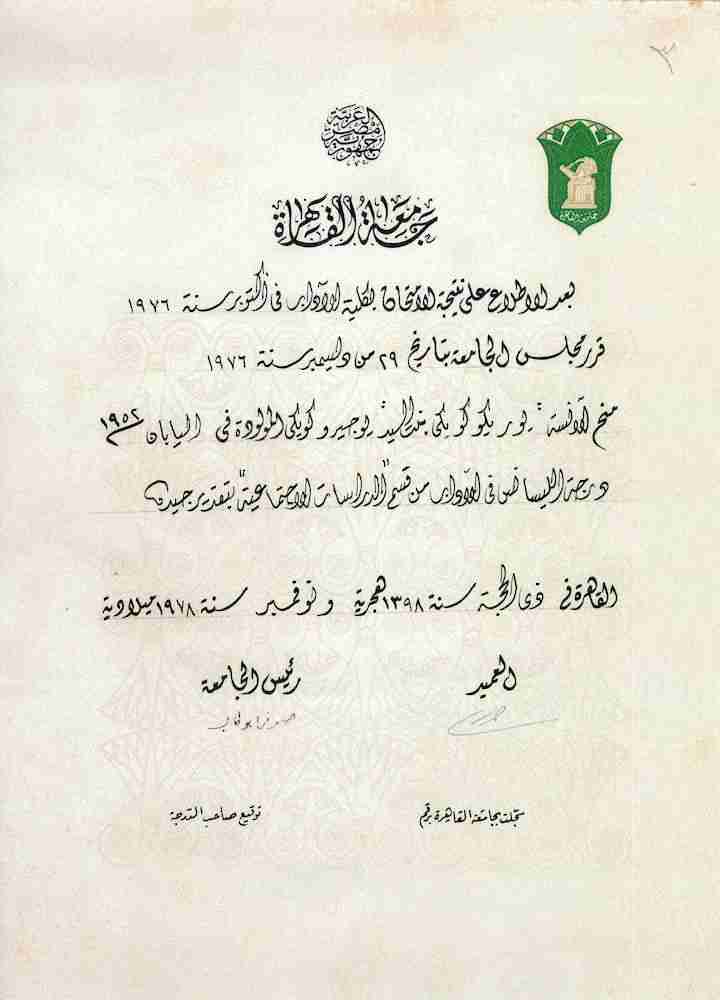 ٣
جمهورية مصر العربية
جامعة القاهرة
جامعة القاهرة
بعد الاطلاع على نتيجة الامتحان بكلية الآداب فى أكتوبر سنة ١٩٧٦
قرر مجلس الجامعة بتاريخ ٢٩ من ديسمبر سنة ١٩٧٦
منح الآنسة " يوريكو كويكى بنت السيد " يوجيرو كويكى المولودة فى اليابان ١٩٥٢
درجة الليسانس فى الآداب من قسم "الدراسات الاجتماعية" بتقدير جيد
القاهرة فى ذى الحجة سنة ١٣٩٨ هجرية و نوفمبر سنة ١٩٧٨ ميلادية
العميد رئيس الجامعة
سجلت بجامعة القاهرة برقم توقيع صاحب الدرجة